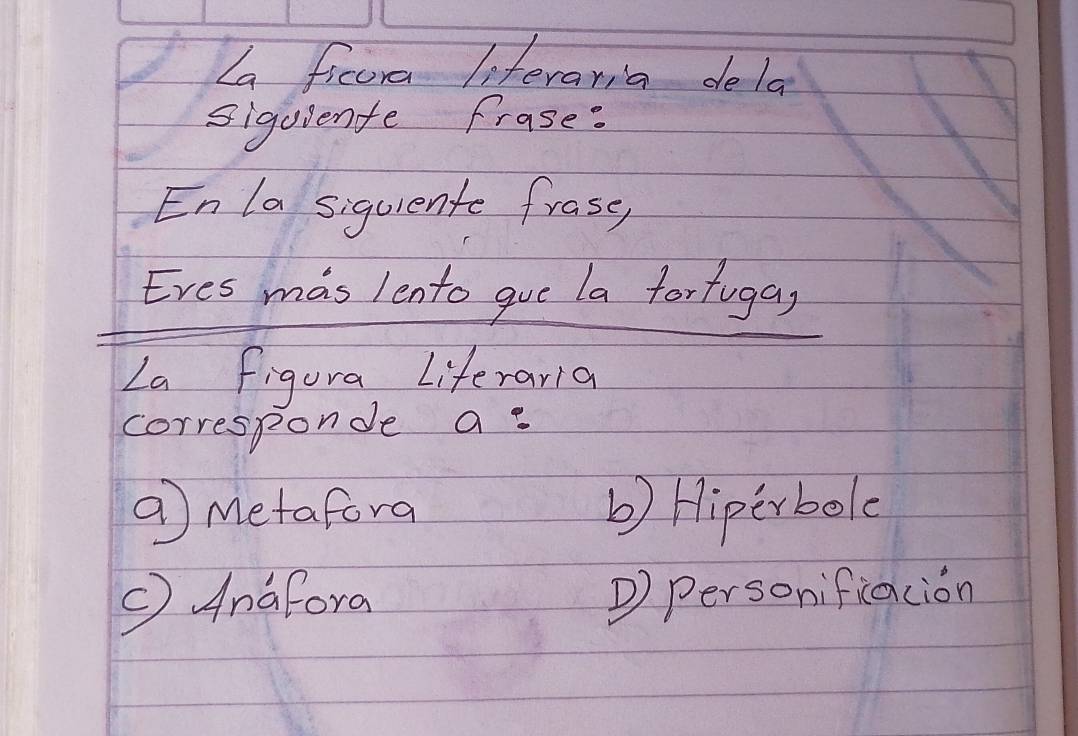 La ficura literaria de la
siguiente frase:
En la siguiente frase,
Eres más lento que la tortuga,
La figura Literaria
corresponde a:
a) Metafora b) Hipérbole
c) Anáfora D) personifiación